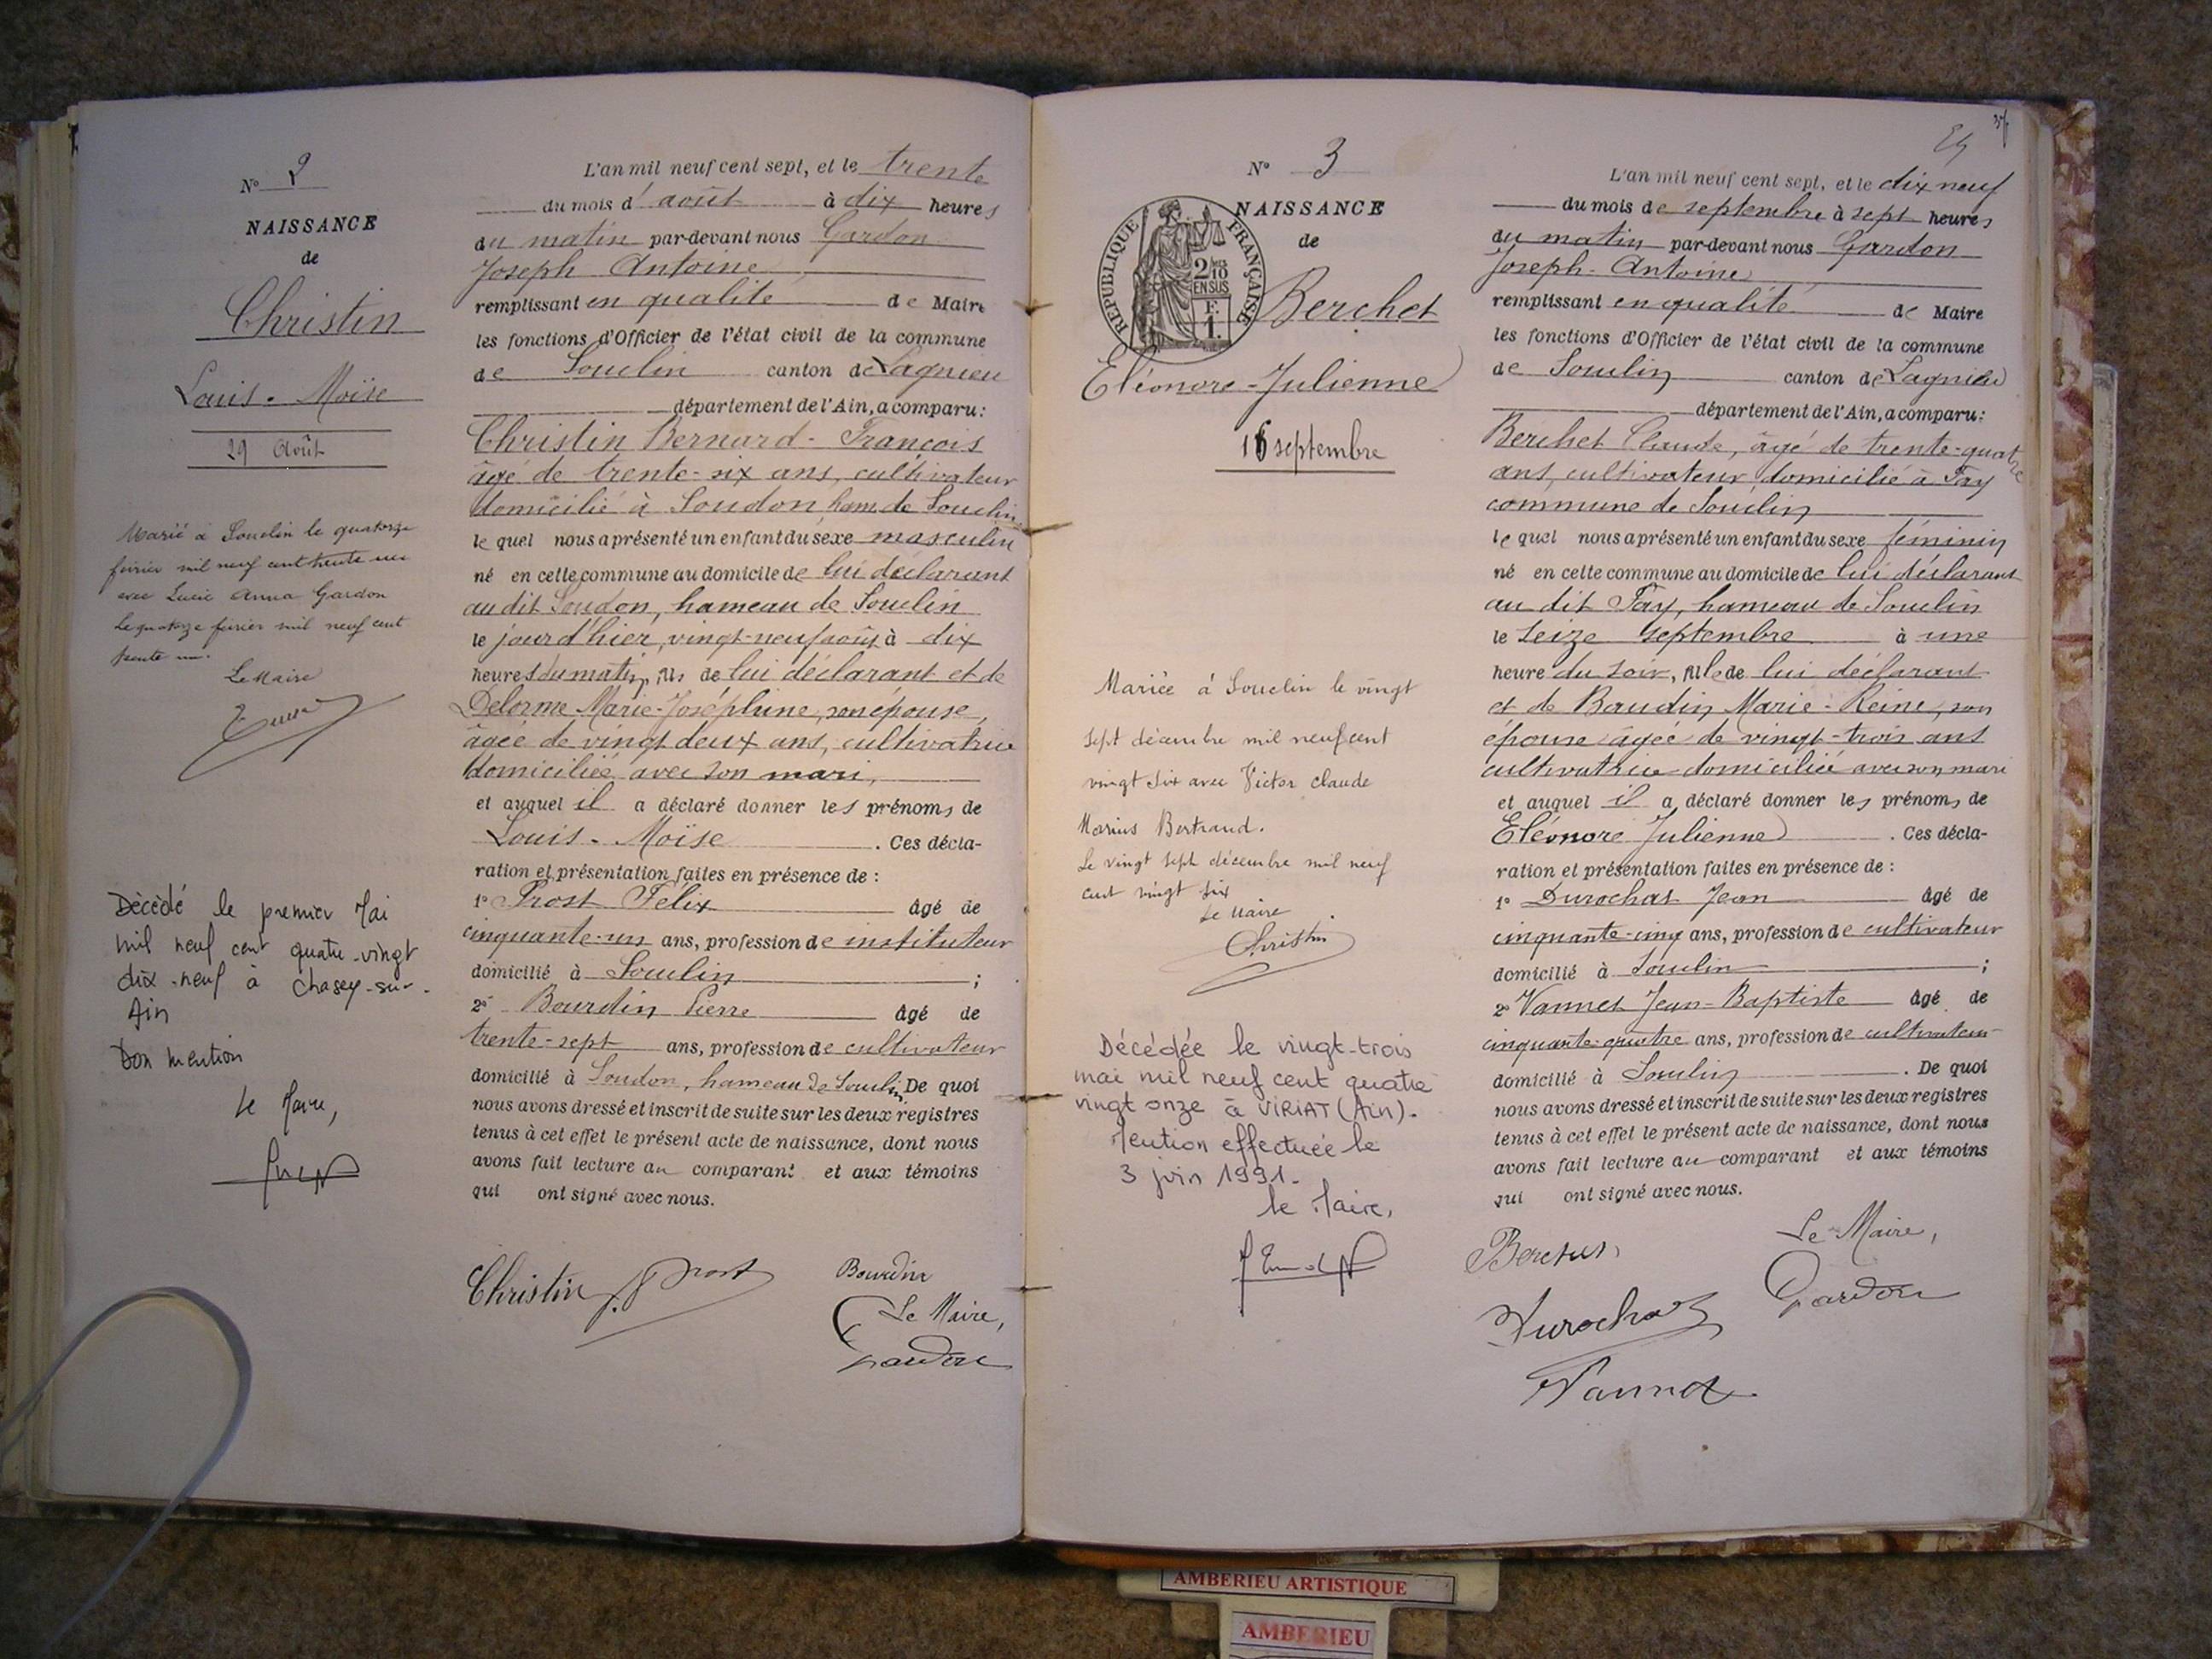 N° 2
NAISSANCE
de
Christin
Louis - Moïse
29 Août
Marié à Souclin le quatorze
février mil neuf cent trente un
avec Lucie Anna Gardon
Le quatorze février mil neuf cent
trente un.
Le Maire
Décédé le premier Mai
mil neuf cent quatre-vingt
dix-neuf à Chazey-sur-
Ain
Don mention
Le Maire,
L'an mil neuf cent sept, et le trente
du mois d'août à dix heures
du matin par-devant nous Gardon
Joseph Antoine
remplissant en qualité de Maire
les fonctions d'Officier de l'état civil de la commune
de Souclin canton de Lagnieu
département de l'Ain, a comparu:
Christin Bernard - François
âgé de trente-six ans, cultivateur
domicilié à Soudon ham. de Souclin
lequel nous a présenté un enfant du sexe masculin
né en cette commune au domicile de lui déclarant
au dit Soudon, hameau de Souclin
le jour d'hier, vingt-neuf août à dix
heures du matin, fils de lui déclarant et de
Delorme Marie-Joséphine, son épouse,
âgée de vingt deux ans, cultivatrice
domiciliée avec son mari,
et auquel il a déclaré donner les prénoms de
Louis - Moïse. Ces décla-
ration et présentation faites en présence de :
1° Prost Félix âgé de
cinquante-un ans, profession de instituteur
domicilié à Souclin ;
2° Bourdin Pierre âgé de
trente-sept ans, profession de cultivateur
domicilié à Soudon, hameau de Souclin. De quoi
nous avons dressé et inscrit de suite sur les deux registres
tenus à cet effet le présent acte de naissance, dont nous
avons fait lecture au comparant et aux témoins
qui ont signé avec nous.
Christin F. Prost Bourdin
Le Maire,
Gardon
N° 3
NAISSANCE
de
REPUBLIQUE FRANÇAISE
2/10
EN SUS
F.
1.
Berchet
Eléonore - Julienne
16 septembre
Mariée à Souclin le vingt
sept décembre mil neuf cent
vingt six avec Victor Claude
Marius Bertrand.
Le vingt sept décembre mil neuf
cent vingt six
Le Maire
Christin
Décédée le vingt-trois
mai mil neuf cent quatre
vingt onze à VIRIAT (Ain).
Mention effectuée le
3 juin 1991.
le Maire,
37
L'an mil neuf cent sept, et le dix neuf
du mois de septembre à sept heures
du matin par-devant nous Gardon
Joseph - Antoine
remplissant en qualité de Maire
les fonctions d'Officier de l'état civil de la commune
de Souclin canton de Lagnieu
département de l'Ain, a comparu:
Berchet Claude, âgé de trente-quatre
ans, cultivateur domicilié à Fay
commune de Souclin
lequel nous a présenté un enfant du sexe féminin
né en cette commune au domicile de lui déclarant
au dit Fay, hameau de Souclin
le seize septembre à une
heure du soir, fille de lui déclarant
et de Baudin Marie-Reine, son
épouse âgée de vingt-trois ans
cultivatrice domiciliée avec son mari
et auquel il a déclaré donner les prénoms de
Eléonore Julienne. Ces décla-
ration et présentation faites en présence de :
1° Durochat Jean âgé de
cinquante-cinq ans, profession de cultivateur
domicilié à Souclin ;
2° Vannet Jean-Baptiste âgé de
cinquante-quatre ans, profession de cultivateur
domicilié à Souclin. De quoi
nous avons dressé et inscrit de suite sur les deux registres
tenus à cet effet le présent acte de naissance, dont nous
avons fait lecture au comparant et aux témoins
qui ont signé avec nous.
Berchet, Le Maire,
Durochat Gardon
Vannet
AMBERIEU ARTISTIQUE
AMBERIEU